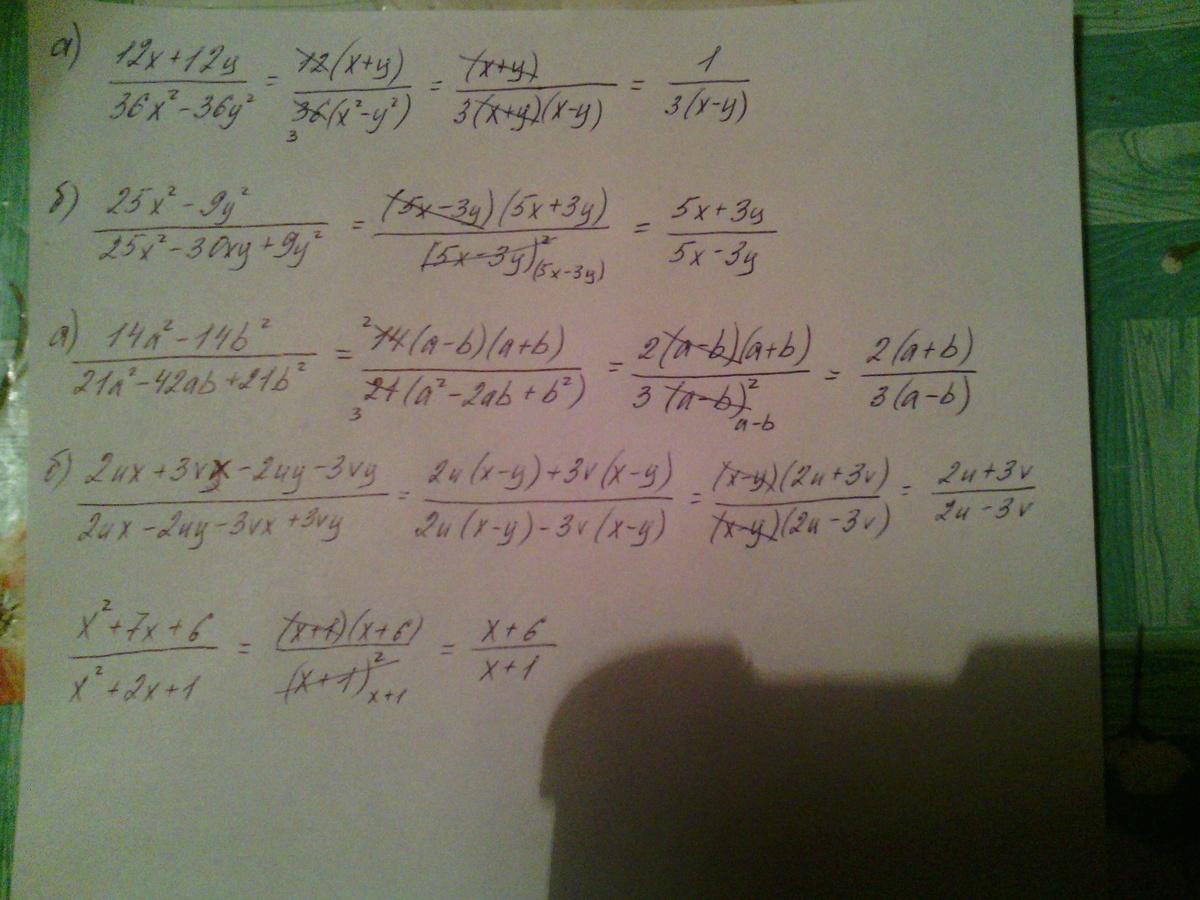 а) (12x+12y)/(36x²-36y²) = 12(x+y)/36(x²-y²) 3 = (x+y)/3(x+y)(x-y) = 1/3(x-y)
б) (25x²-9y²)/(25x²-30xy+9y²) = (5x-3y)(5x+3y)/(5x-3y)² (5x-3y) = (5x+3y)/(5x-3y)
а) (14a²-14b²)/(21a²-42ab+21b²) = 2 14(a-b)(a+b)/3 21(a²-2ab+b²) = 2(a-b)(a+b)/3(a-b)² a-b = 2(a+b)/3(a-b)
б) (2ux+3vx-2uy-3vy)/(2ux-2uy-3vx+3vy) = (2u(x-y)+3v(x-y))/(2u(x-y)-3v(x-y)) = (x-y)(2u+3v)/(x-y)(2u-3v) = (2u+3v)/(2u-3v)
(x²+7x+6)/(x²+2x+1) = (x+1)(x+6)/(x+1)² x+1 = (x+6)/(x+1)